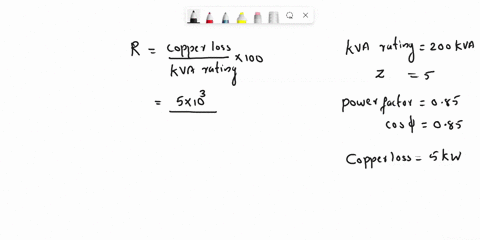 R = copper loss / kVA rating × 100
= 5×10³
kVA rating = 200 kVA
Z = 5
power factor = 0.85
cos ϕ = 0.85
Copper loss = 5 kW